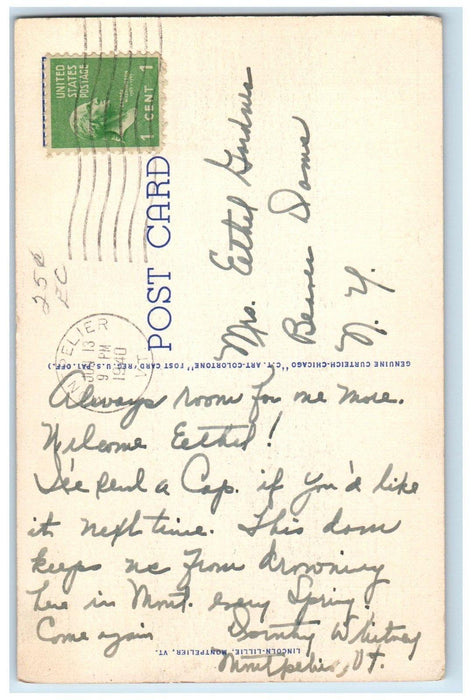 UNITED
STATES
POSTAGE
1 CENT 1
MONTPELIER
13
9 PM
1940
VT.
25¢
EC
POST CARD
Mrs. Eethel Gardner
Beaver Dams
N. Y.
GENUINE CURTEICH-CHICAGO "C.T. ART-COLORTONE" POST CARD (REG. U.S. PAT. OFF.)
Always room for one more.
Welcome Eethel!
I'll send a Cap. if you'd like
it next time. This dam
keeps us from drowning
here in Mont. every Spring.
Come again Dorothy Whitney
Montpelier, Vt.
LINCOLN-LILLIE, MONTPELIER, VT.